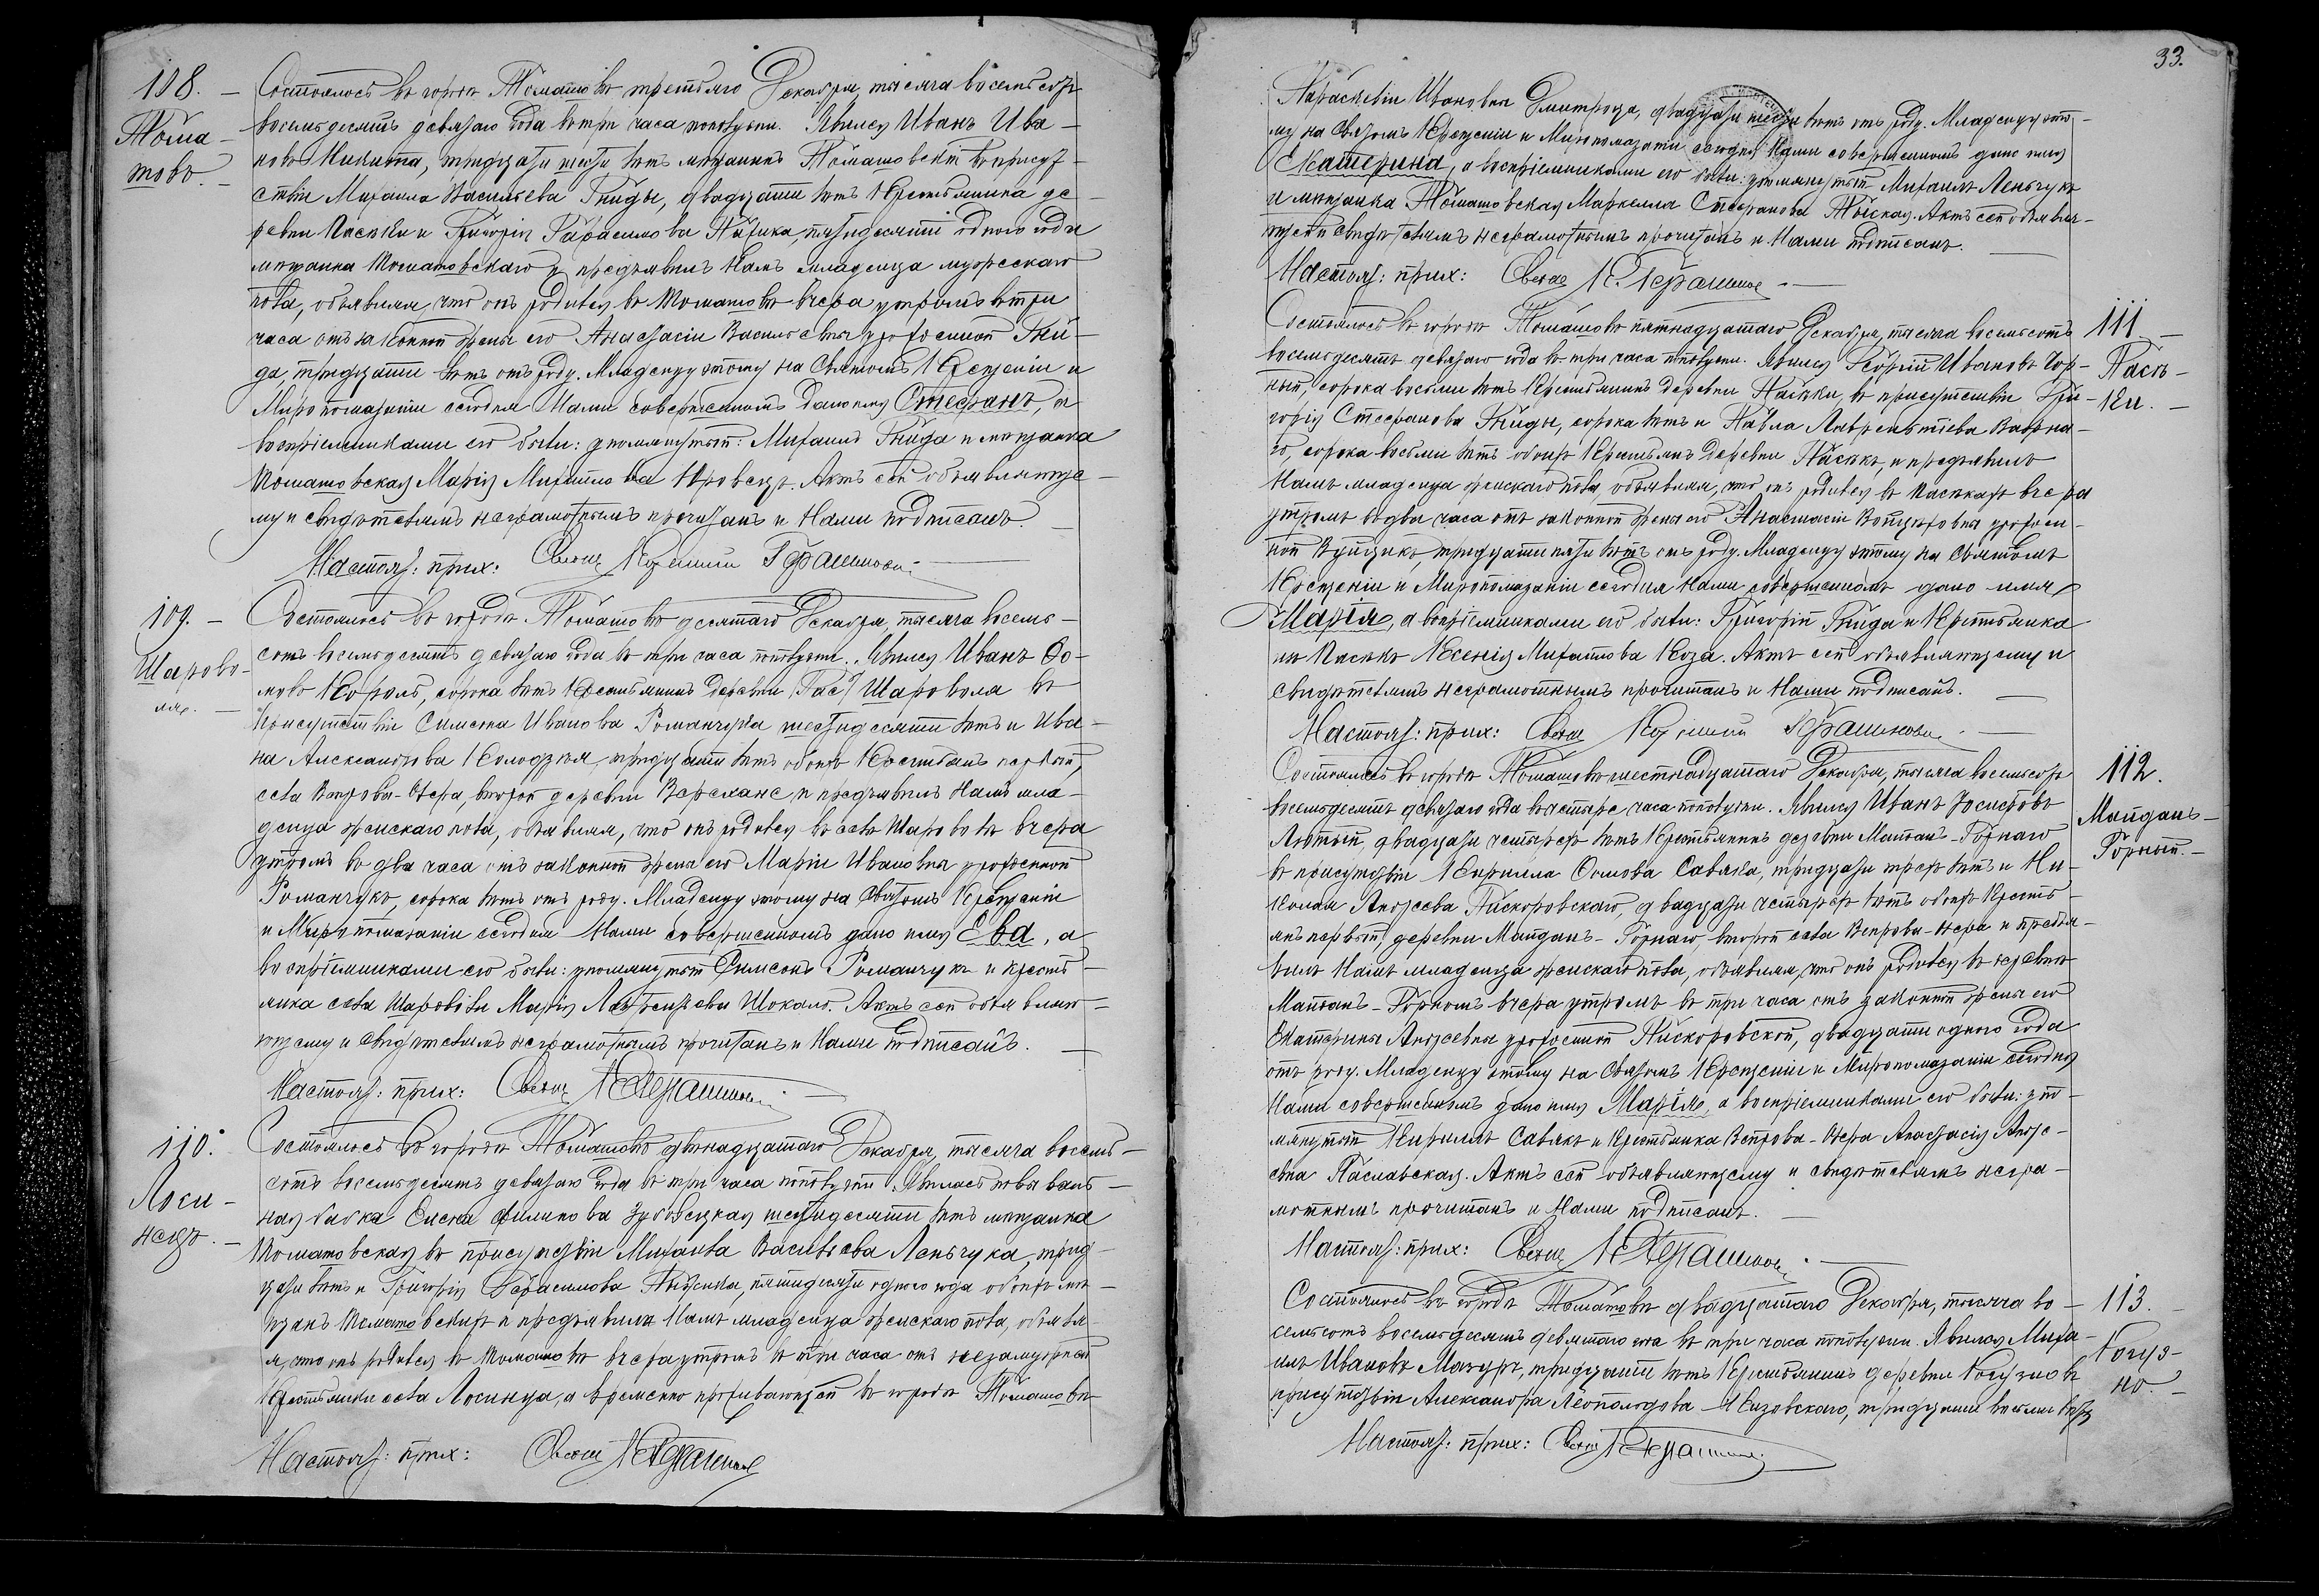 108. —
Тома-
шовъ. —
Состоялось въ городѣ Томашовѣ третьяго Декабря, тысяча восемьсотъ
восемьдесятъ девятаго года въ три часа пополудни. Явился Иванъ Ива-
новъ Микита, тридцати шести лѣтъ мѣщанинъ Томашовскій въ присут-
ствіи Михаила Васильева Гнѣды, двадцати лѣтъ Крестьянина де-
ревни Пасѣки и Григорія Герасимова, пятидесяти одного года
мѣщанина Томашовскаго и предъявилъ Намъ младенца мужескаго
пола, объявляя, что онъ родился въ Томашовѣ вчера утромъ въ три
часа отъ законной жены его Анастасіи Васильевны урожденной Гнѣ-
да, тридцати лѣтъ отъ роду. Младенцу этому на Святомъ Крещеніи и
Миропомазаніи сегодня Нами совершенномъ дано имя Стефанъ, а
воспріемниками его были: упомянутый: Михаилъ Гнѣда и мѣщанка
Томашовская Марія Михайлова. Актъ сей объявляюще-
му и свидѣтелямъ неграмотнымъ прочитанъ и Нами подписанъ. —
Настоят: прих: Свящ
109. —
Шарово-
ля. —
Состоялось въ городѣ Томашовѣ десятаго Декабря, тысяча восемь-
сотъ восемьдесятъ девятаго года въ три часа пополудни. Явился Иванъ Ѳо-
мовъ Король, сорока лѣтъ Крестьянинъ деревни Шаровола въ
присутствіи Симеона Иванова Романчука шестидесяти лѣтъ и Ива-
на Александрова Колодзѣя, тридцати лѣтъ обоихъ Крестьянъ первый,
села Вепрова-Озера, второй деревни и предъявилъ Намъ мла-
денца женскаго пола, объявляя, что онъ родился въ селѣ Шароволѣ вчера
утромъ въ два часа отъ законной жены его Маріи Ивановны урожденной
Романчукъ, сорока лѣтъ отъ роду. Младенцу этому на Святомъ Крещеніи
и Миропомазаніи сегодня Нами совершенномъ дано имя Ева, а
воспріемниками его были: упомянутый Симеонъ Романчукъ и Кресть-
янка села Шароволи Марія Шокало. Актъ сей объявляю-
щему и свидѣтелямъ неграмотнымъ прочитанъ и Нами подписанъ. —
Настоят: прих: Свящ
110.
Лоси-
нецъ. —
Состоялось въ городѣ Томашовѣ двѣнадцатаго Декабря, тысяча восемь-
сотъ восемьдесятъ девятаго года въ три часа пополудни. Явилась повиваль-
ная бабка Филипова шестидесяти лѣтъ мѣщанка
Томашовская въ присутствіи Михаила Васильева Леньчука, трид-
цати лѣтъ и Григорія Герасимова, пятидесяти одного года обоихъ мѣ-
щанъ Томашовскихъ и предъявила Намъ младенца женскаго пола, объявля-
я, что онъ родился въ Томашовѣ вчера утромъ въ три часа отъ незамужней
Крестьянки села Лосинца, а временно проживающей въ городѣ Томашовѣ
Настоят: прих: Свящ
33.
Параскевіи Ивановны, двадцати шести лѣтъ отъ роду. Младенцу это-
му на Святомъ Крещеніи и Миропомазаніи сегодня Нами совершенномъ дано имя
Екатерина, а воспріемниками его были: упомянутый Михаилъ Леньчукъ
и мѣщанка Томашовская Стефанова. Актъ сей объявля-
ющей и свидѣтелямъ неграмотнымъ прочитанъ и Нами подписанъ. —
Настоят: прих: Свящ
111 —
Пасѣ-
ки. —
Состоялось въ городѣ Томашовѣ пятнадцатаго Декабря, тысяча восемьсотъ
восемьдесятъ девятаго года въ три часа пополудни. Явился Георгій Ивановъ Чор-
ный, сорока восьми лѣтъ Крестьянинъ деревни Пасѣки, въ присутствіи Гри-
горія Стефанова Гнѣды, сорока лѣтъ и Павла Лаврентіева
сорока восьми лѣтъ обоихъ Крестьянъ деревни Пасѣкъ, и предъявилъ
Намъ младенца женскаго пола, объявляя, что онъ родился въ Пасѣкахъ вчера
утромъ въ два часа отъ законной жены его Анастасіи урожден-
ной, тридцати пяти лѣтъ отъ роду. Младенцу этому на Святомъ
Крещеніи и Миропомазаніи сегодня Нами совершенномъ дано имя
Марія, а воспріемниками его были: Григорій Гнѣда и Крестьянка
изъ Пасѣкъ Ксенія Михайлова Коза. Актъ сей объявляющему и
свидѣтелямъ неграмотнымъ прочитанъ и Нами подписанъ. —
Настоят: прих: Свящ
112.
Майданъ-
Горный. —
Состоялось въ городѣ Томашовѣ шестнадцатаго Декабря, тысяча восемьсотъ
восемьдесятъ девятаго года въ четыре часа пополудни. Явился Иванъ Іосифовъ
Лютый, двадцати четырехъ лѣтъ Крестьянинъ деревни Майданъ-Горнаго
въ присутствіи Кирилла Савяка, тридцати трехъ лѣтъ и Ни-
колая Андреева Пискоровскаго, двадцати четырехъ лѣтъ обоихъ Кресть-
янъ первый, деревни Майданъ-Горнаго, второй села Вепрова-Озера и предъя-
вилъ Намъ младенца женскаго пола, объявляя, что онъ родился въ деревнѣ
Майданъ-Горномъ вчера утромъ въ три часа отъ законной жены его
Екатерины Андреевны урожденной Пискоровской, двадцати одного года
отъ роду. Младенцу этому на Святомъ Крещеніи и Миропомазаніи сегодня
Нами совершенномъ дано имя Марія, а воспріемниками его были: упо-
мянутый Кириллъ Савякъ и Крестьянка Вепрова-Озера Анастасія Андре-
евна Паславская. Актъ сей объявляющему и свидѣтелямъ негра-
мотнымъ прочитанъ и Нами подписанъ. —
Настоят: прих: Свящ
113. —
Рогуз-
но. —
Состоялось въ городѣ Томашовѣ двадцатаго Декабря, тысяча во-
семьсотъ восемьдесятъ девятаго года въ три часа пополудни. Явился Миха-
илъ Ивановъ Мазуръ, тридцати лѣтъ Крестьянинъ деревни Рогузно въ
присутствіи Александра Леопольдова, тридцати восьми лѣтъ
Настоят: прих: Свящ